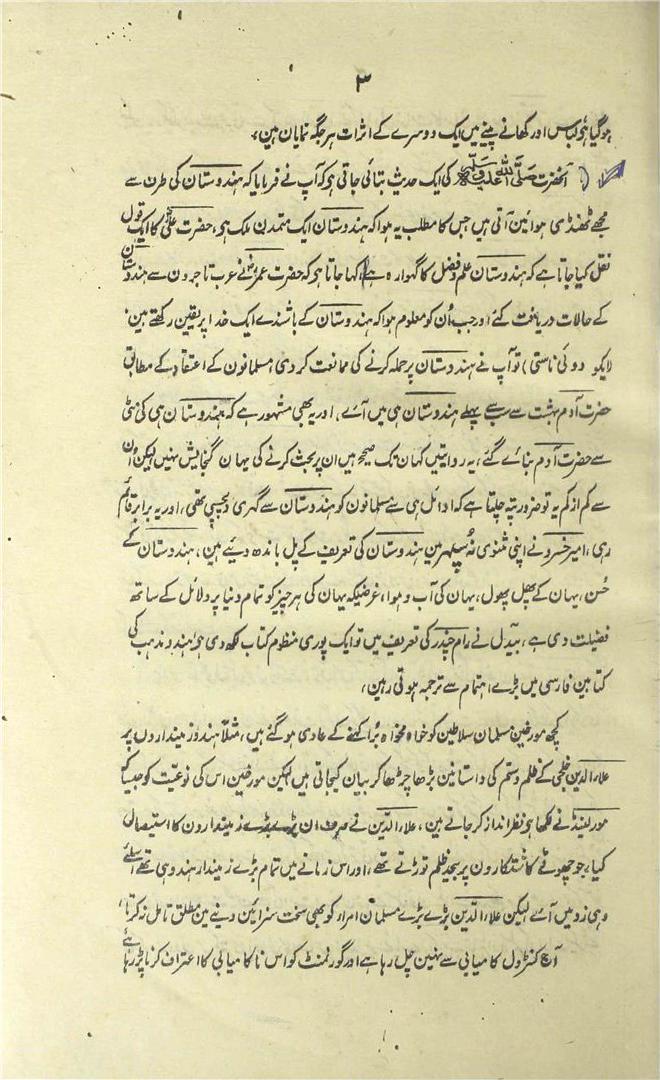 ۳
ہوگیا ہی لباس اور کھانے پینے میں ایک دوسرے کے اثرات ہر جگہ نمایان ہین،
( آنحضرت صَلَّی اللہ علیہ وسلّم کی ایک حدیث بتائی جاتی ہی کہ آپ نے فرمایا کہ ہندوستان کی طرف سے
مجھے ٹھنڈی ہوائین آتی ہیں جس کا مطلب یہ ہوا کہ ہندوستان ایک متمدن ملک ہی، حضرت علیؓ کا ایک قول
نقل کیا جاتا ہے کہ ہندوستان علم و فضل کا گہوارہ ہے، کہا جاتا ہی کہ حضرت عمرؓ نے عرب تاجرون سے ہندوستان
کے حالات دریافت کئے اور جب اُن کو معلوم ہوا کہ ہندوستان کے باشندے ایک خدا پر یقین رکھتے ہین
(ایکو دوئی ناستی) تو آپ نے ہندوستان پر حملہ کرنے کی ممانعت کر دی، مسلمانون کے اعتقاد کے مطابق
حضرت آدم بہشت سے سب سے پہلے ہندوستان ہی میں آئے، اور یہ بھی مشہور ہے کہ ہندوستان ہی کی مٹی
سے حضرت آدم بنائے گئے، یہ روایتیں کہان تک صحیح ہیں ان پر بحث کرنے کی یہان گنجایش نہیں لیکن ان
سے کم از کم یہ تو ضرور پتہ چلتا ہے کہ اوائل ہی سے مسلمانون کو ہندوستان سے گہری دلچسپی تھی، اور یہ برابر قائم
رہی، امیر خسرو نے اپنی مثنوی نُہ سپہر مین ہندوستان کی تعریف کے پل باندھ دیئے ہین، ہندوستان کے
حُسن، یہان کے پھل پھول، یہان کی آب و ہوا، غرضیکہ یہان کی ہر چیز کو تمام دنیا پر دلائل کے ساتھ
فضیلت دی ہے، بیدل نے رام چندر کی تعریف میں تو ایک پوری منظوم کتاب لکھ دی ہی، ہندو مذہب کی
کتابین فارسی میں بڑے اہتمام سے ترجمہ ہوتی رہین،
کچھ مورخین مسلمان سلاطین کو خواہ مخواہ بُرا کہنے کے عادی ہو گئے ہیں، مثلاً ہندو زمینداروں پر
علاء الدین خلجی کے ظلم و ستم کی داستانین بڑھا چڑھا کر بیان کیجاتی ہیں لیکن مورخین اس کی نوعیّت کو جیسا کہ
مورلینڈ نے لکھا ہی نظر انداز کر جاتے ہین، علاء الدین نے صرف ان بڑے بڑے زمیندارون کا استیصال
کیا، جو چھوٹے کاشتکارون پر بیحد ظلم توڑتے تھے، اور اس زمانے میں تمام بڑے زمیندار ہندو ہی تھے اسلئے
وہی زد میں آئے لیکن علاء الدین بڑے بڑے مسلمان امراء کو بھی سخت سزائین دینے مین مطلق تامل نہ کرتا،
آج کنٹرول کامیابی سے نہین چل رہا ہے اور گورنمنٹ کو اس ناکامیابی کا اعتراف کرنا پڑ رہا ہے